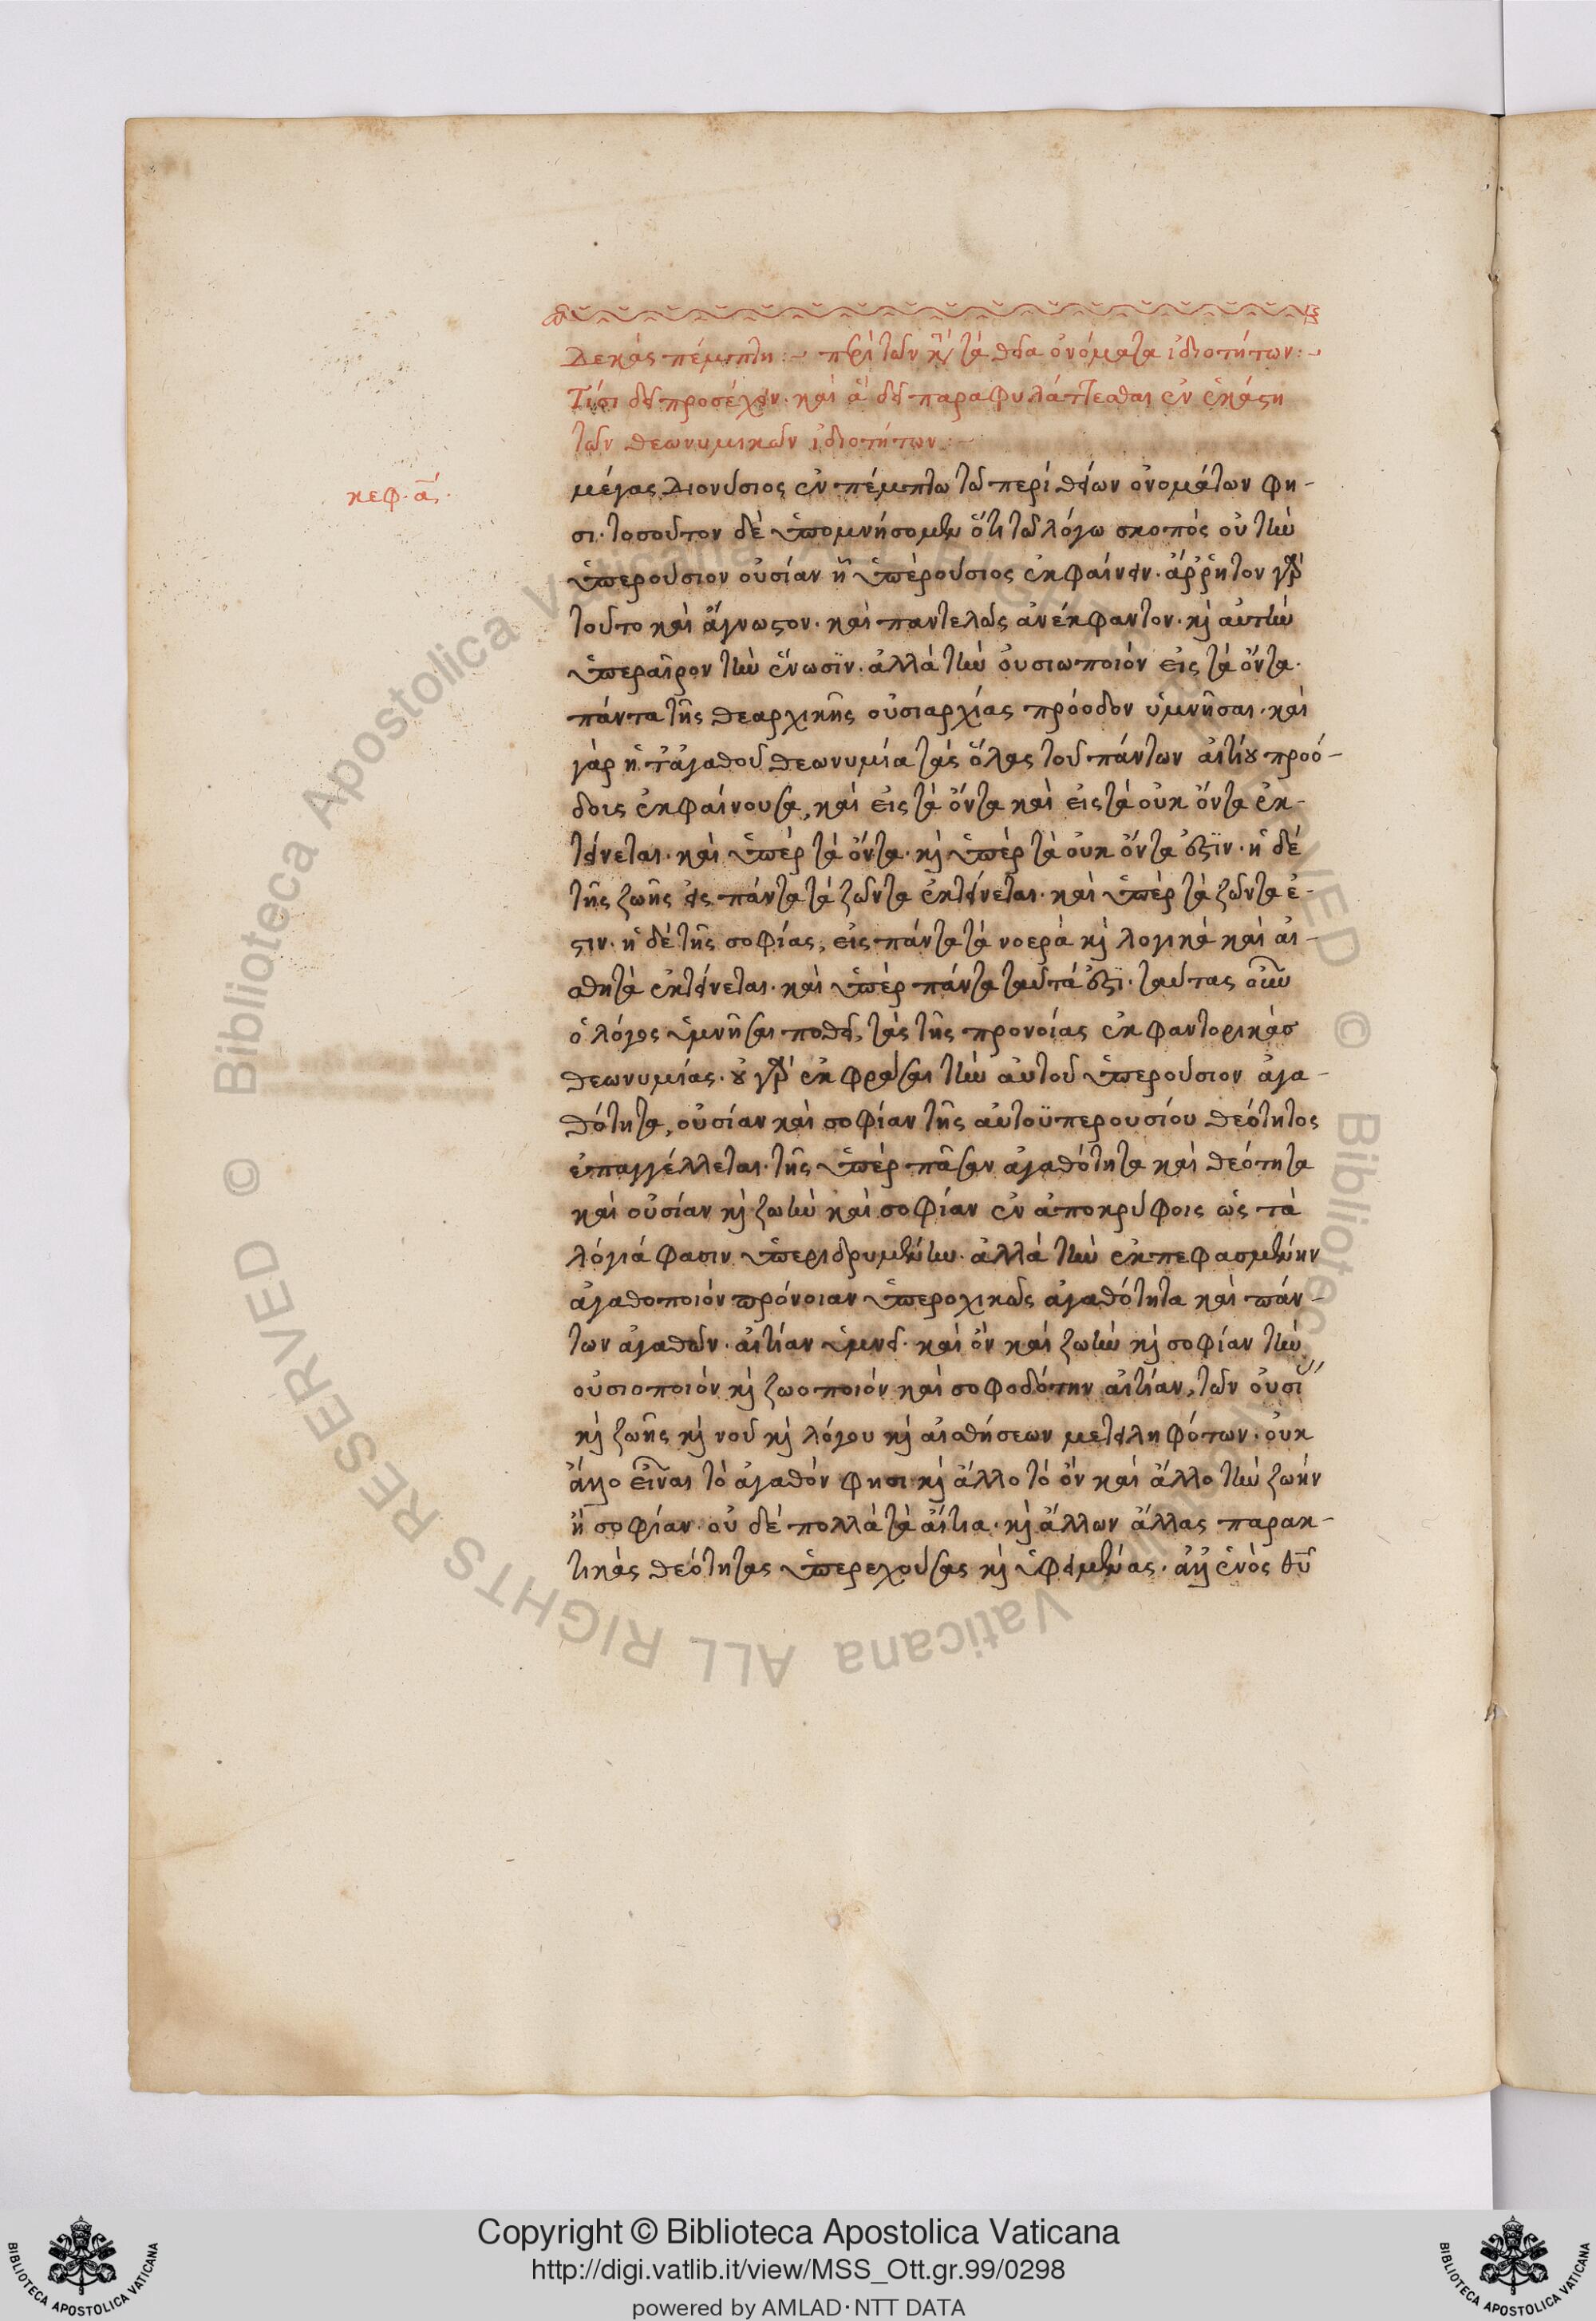 Δεκὰς πέμπτη:– περὶ τῶν κατὰ τὰ θεῖα ὀνόματα ἰδιοτήτων:–
Τίσι δεῖ προσέχειν· καὶ ἃ δεῖ παραφυλάττεσθαι ἐν ἑκάστη
τῶν θεωνυμικῶν ἰδιοτήτων:–
κεφ. α̅.
μέγας Διονύσιος ἐν πέμπτω τῶ περὶ θείων ὀνομάτων φη-
σι· τοσοῦτον δὲ ὑπομνήσομεν ὅτι τῶ λόγω σκοπὸς οὐ τὴν
ὑπερούσιον οὐσίαν ἧ ὑπερούσιος ἐκφαίνειν· ἄρρητον γὰρ
τοῦτο καὶ ἄγνωστον· καὶ παντελῶς ἀνέκφαντον· καὶ αὐτὴν
ὑπεραῖρον τὴν ἕνωσϊν· ἀλλὰ τὴν οὐσιωποιὸν εἰς τὰ ὄντα·
πάντα τῆς θεαρχικῆς οὐσιαρχίας πρόοδον ὑμνῆσαι· καὶ
γὰρ ἡ τἀγαθοῦ θεωνυμία τὰς ὅλας τοῦ πάντων αἰτίου προό-
δοις ἐκφαίνουσα, καὶ εἰς τὰ ὄντα καὶ εἰς τὰ οὐκ ὄντα ἐκ-
τείνεται· καὶ ὑπὲρ τὰ ὄντα· καὶ ὑπὲρ τὰ οὐκ ὄντα ἐστϊν· ἡ δὲ
τῆς ζωῆς εἰς πάντα τὰ ζῶντα ἐκτείνεται· καὶ ὑπὲρ τὰ ζῶντα ἐ-
στιν· ἡ δὲ τῆς σοφίας, εἰς πάντα τὰ νοερὰ καὶ λογικὰ καὶ αἰ-
σθητὰ ἐκτείνεται· καὶ ὑπὲρ πάντα ταῦτά ἐστϊ· ταύτας οὖν
ὁ λόγος ὑμνῆσαι ποθεῖ, τὰς τῆς προνοίας ἐκφαντορικὰσ
θεωνυμίας· οὐ γὰρ ἐκφράσαι τὴν αὐτοῦ ὑπερούσιον ἀγα-
θότητα, οὐσίαν καὶ σοφίαν τῆς αὐτοϋπερουσίου θεότητος
ἐπαγγέλλεται· τῆς ὑπὲρ πᾶσαν ἀγαθότητα καὶ θεότητα
καὶ οὐσίαν καὶ ζωὴν καὶ σοφίαν ἐν ἀποκρύφοις ὡς τὰ
λόγιά φασιν ὑπεριδρυμένην· ἀλλὰ τὴν ἐκπεφασμένην
ἀγαθοποιὸν πρόνοιαν ὑπεροχικῶς ἀγαθότητα καὶ πάν-
των ἀγαθῶν· αἰτίαν ὑμνεῖ· καὶ ὂν καὶ ζωὴν καὶ σοφίαν τὴν
οὐσιοποιὸν καὶ ζωοποιὸν καὶ σοφοδότην αἰτίαν, τῶν οὐσίας
καὶ ζωῆς καὶ νοῦ καὶ λόγου καὶ αἰσθήσεων μετειληφότων· οὐκ
ἄλλο εἶναι τὸ ἀγαθόν φησι καὶ ἄλλο τὸ ὂν καὶ ἄλλο τὴν ζωὴν
ἢ σοφίαν· οὐ δὲ πολλὰ τὰ αἴτια· καὶ ἄλλων ἄλλας παρακ-
τικὰς θεότητας ὑπερεχούσας καὶ ὑφειμένας· ἀλλ' ἑνὸς θεοῦ
Copyright © Biblioteca Apostolica Vaticana
http://digi.vatlib.it/view/MSS_Ott.gr.99/0298
powered by AMLAD·NTT DATA
BIBLIOTECA APOSTOLICA VATICANA
BIBLIOTECA APOSTOLICA VATICANA
© Biblioteca Apostolica Vaticana ALL RIGHTS RESERVED © Biblioteca Apostolica Vaticana ALL RIGHTS RESERVED